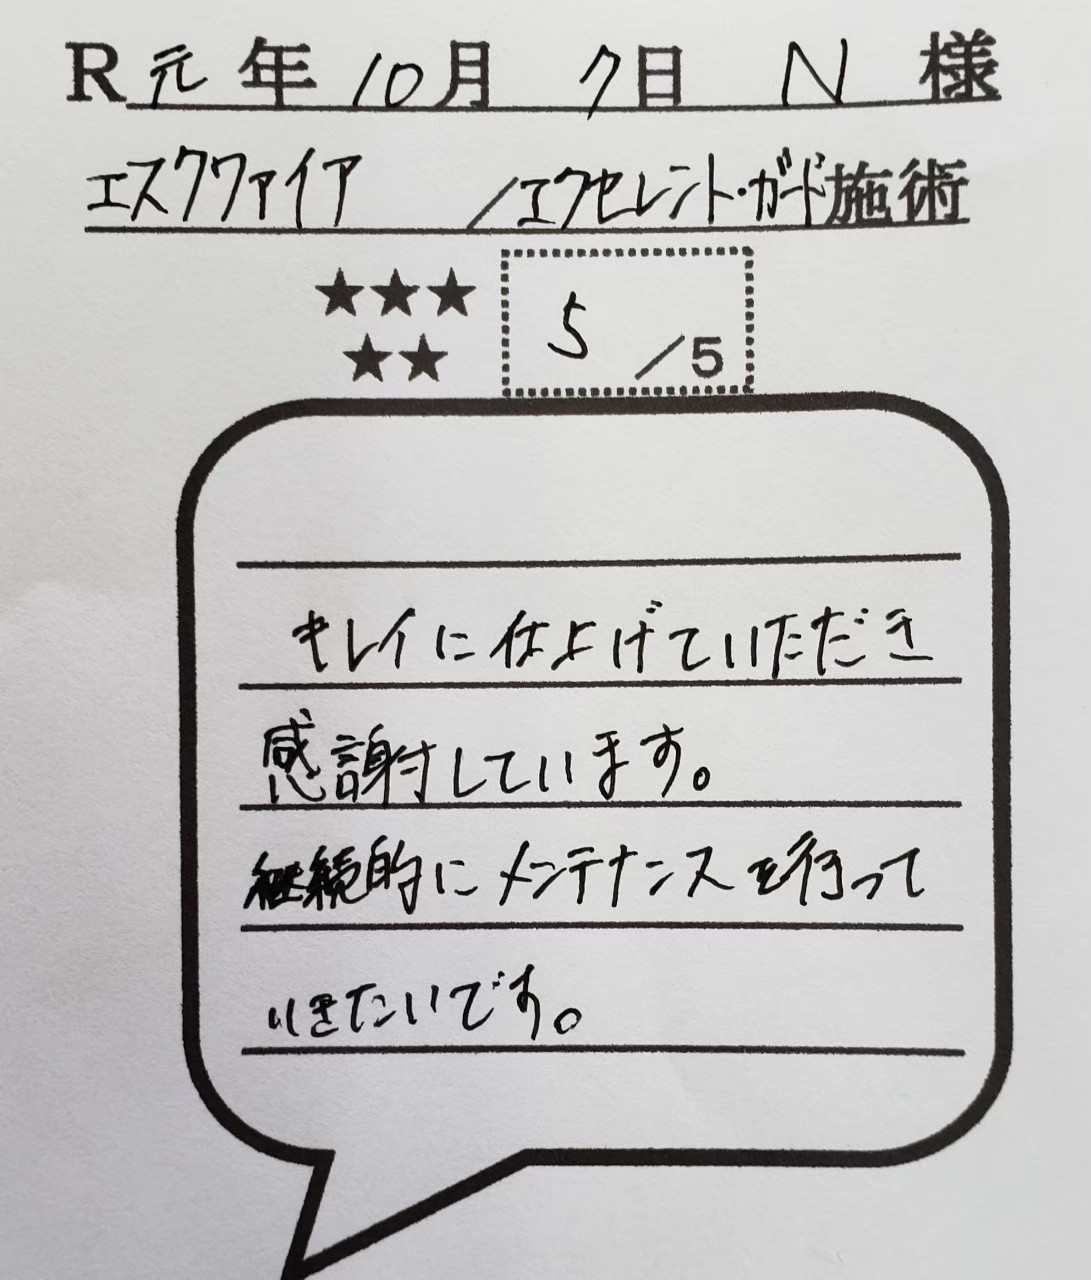 R元年10月7日 N様
エスクワァイア /エクセレント・ガード施術
★★★
★★
5/5
キレイに仕上げていただき
感謝しています。
継続的にメンテナンスを行って
いきたいです。